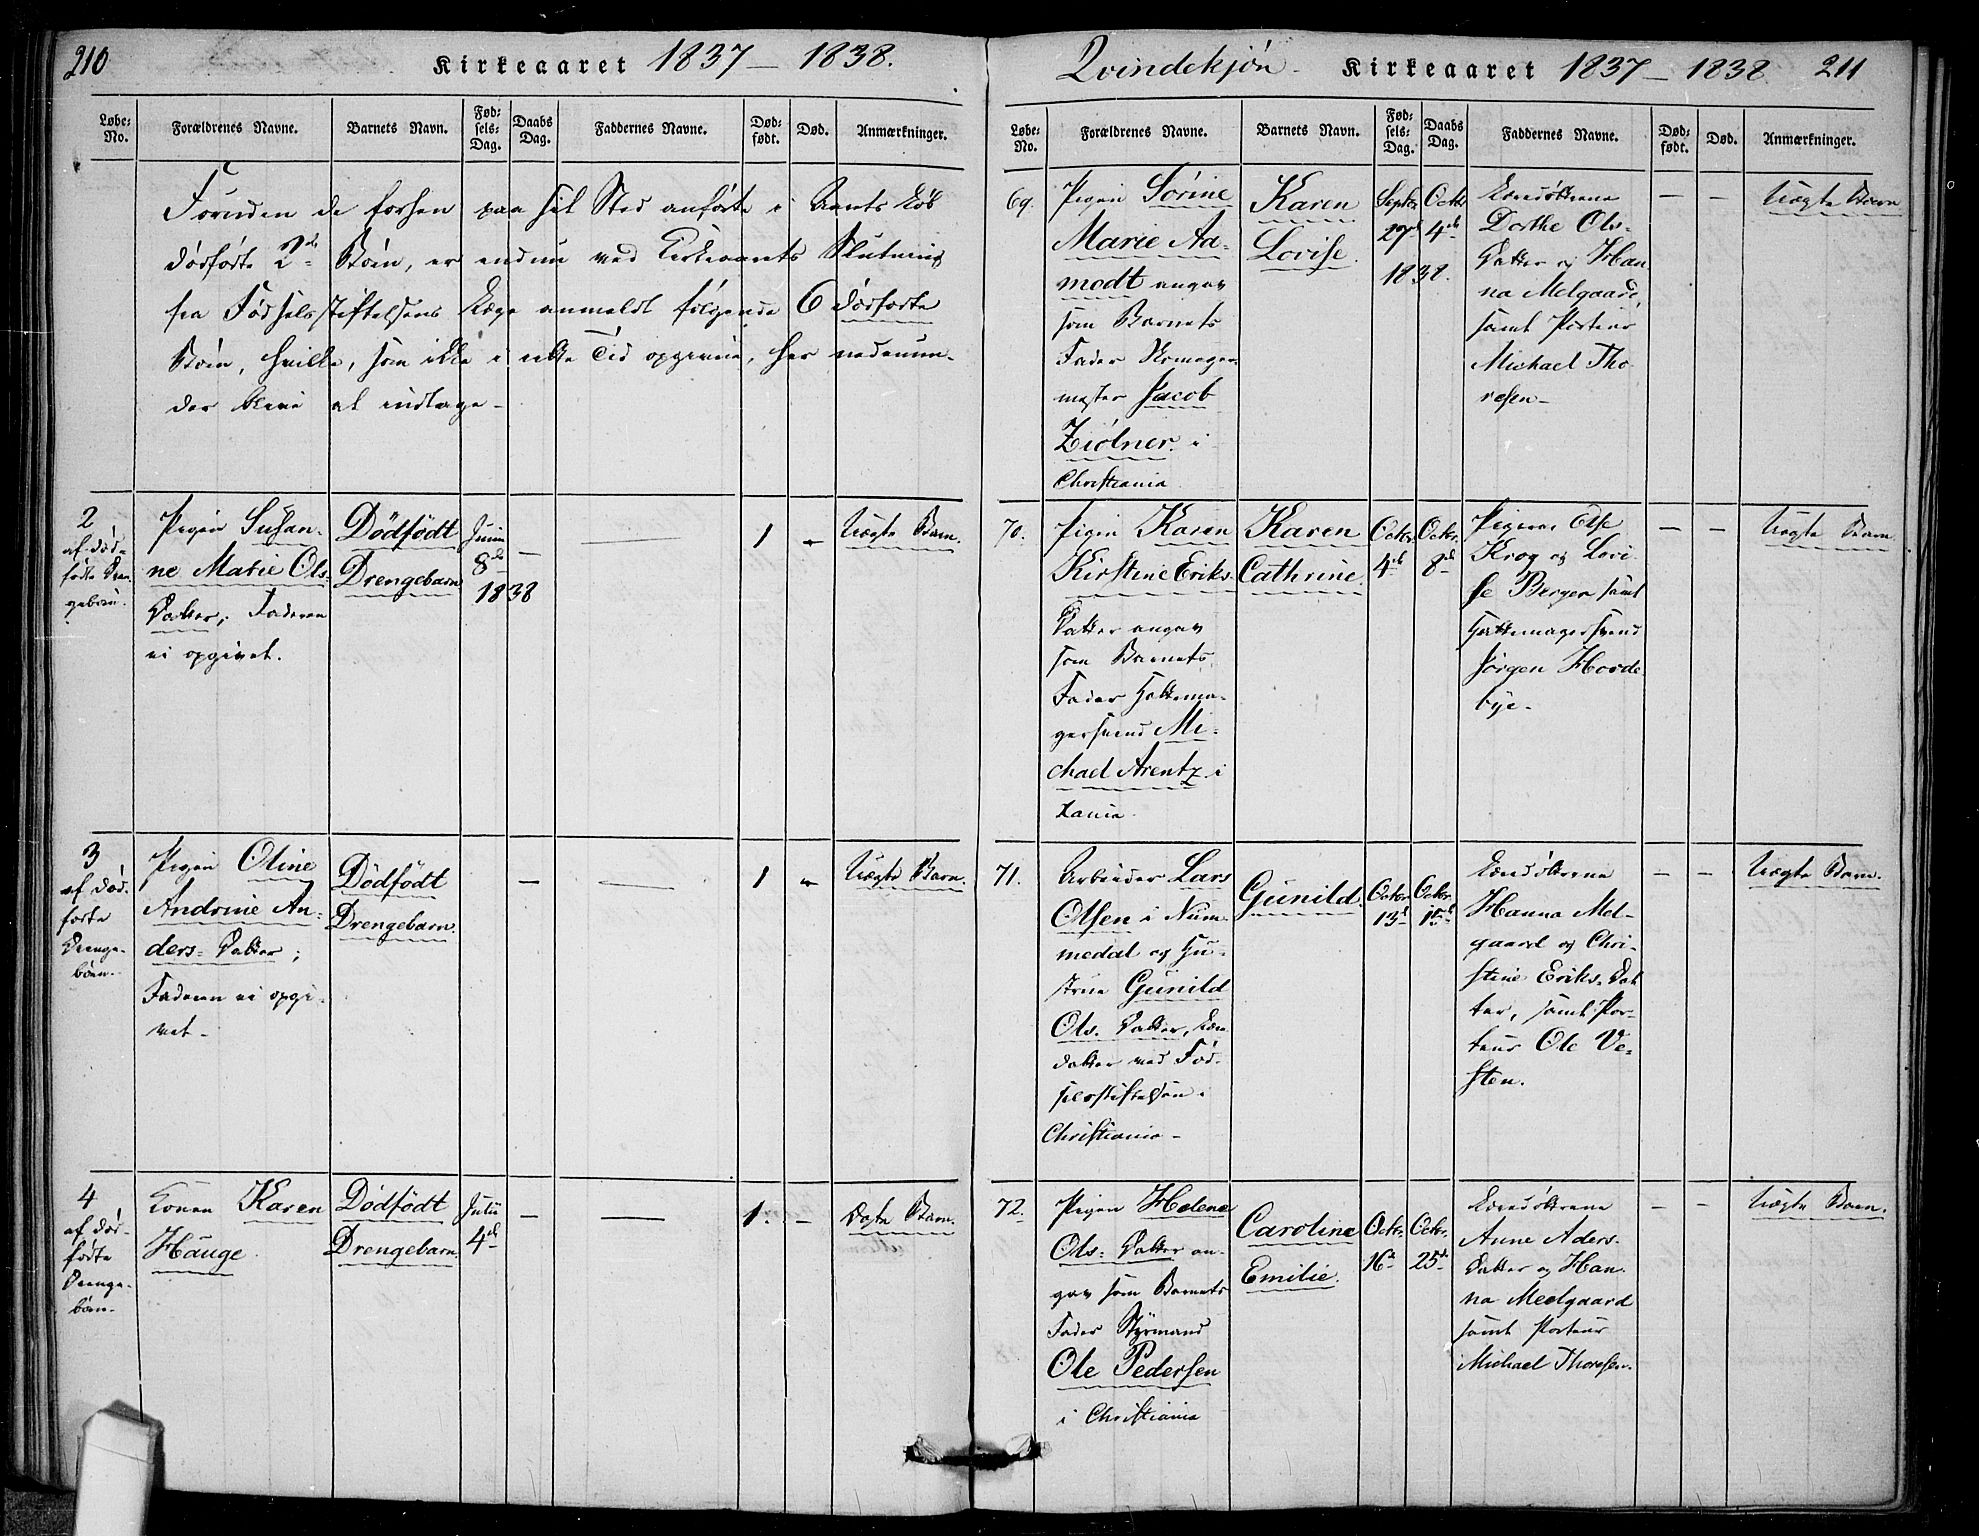 210
Kirkeaaret 1837 — 1838.
Løbe-No. Forældrenes Navne. Barnets Navn. Fødsels-Dag. Daabs Dag. Faddernes Navne. Dødfødt. Død. Anmærkninger.
Foruden de forhen paa sit Sted anførte i Aarets Løb
dødfødte 2de Børn, er endnu ved Kirkeaarets Slutning
fra Fødselsstiftelsens Læge anmeldt følgende 6 dødfødte
Børn, hvilke, som ikke i rette Tid opgivne, her nedenun-
der blive at indtage-
2
af død-
fødte Dren-
gebørn.
Pigen Susan-
ne Marie Ols-
Datter; Faderen
ei opgivet.
Dödfödt
Drengebarn
Junii
8de
1838
—
—
1
—
Uægte Barn.
3
af død-
fødte
Drenge-
børn-
Pigen Oline
Andrine An-
ders- Datter;
Faderen ei opgi-
vet-
Dödfödt
Drengebarn.
—
—
1
—
Uægte Barn.
4
af død-
fødte
Drenge-
børn-
Konen Karen
Hauge.
Dödfödt
Drengebarn.
Julii
4de
—
—
1.
—
Ægte Barn.
Qvindekjøn- Kirkeaaret 1837 — 1838 211
Løbe-No. Forældrenes Navne. Barnets Navn. Fødsels-Dag. Daabs Dag. Faddernes Navne. Dødfødt. Død. Anmærkninger.
69.
Pigen Sörine
Marie Aa-
modt angav
som Barnets
Fader Skomager-
mester Jacob
Ziölner i
Christiania
Karen
Lovise.
Septbr
27de
1838.
Octbr
4de
Læredøttrene
Dorthe Ols-
Datter og Han-
na Melgaard,
samt Porteur
Michael Tho-
resen-
—
—
Uægte Barn
70.
Pigen Karen
Kirstine Eriks-
Datter angav
som Barnets
Fader Hattema-
gersvend Mi-
chael Arentz i
Xania-
Karen
Cathrine.
Octbr.
4de
Octbr.
8de
Pigerne Else
Krog og Lovi-
se Bergen samt
Hattemagersvend
Jörgen Horde-
bye-
—
—
Uægte Barn
71.
Arbeider Lars
Olsen i Num-
medal og Hu-
strue Gunild
Ols- Datter, Lære-
datter ved Fød-
selsstiftelsen i
Christiania-
Gunild.
Octbr.
13de
Octbr.
15de
Læredøttrene
Hanna Mel-
gaard og Chri-
stine Eriks-Dat-
ter, samt Por-
teur Ole Ve-
sten.
—
—
Uægte Barn.
72.
Pigen Helene
Ols- Datter an-
gav som Barnets
Fader Styrmand
Ole Pedersen
i Christiania
Caroline
Emilie.
Octbr.
16de
Octbr.
25de
Læredøttrene
Anne Aders-
Datter og Han-
na Meelgaard
samt Porteur
Michael Thoresen-
—
—
Uægte Barn.